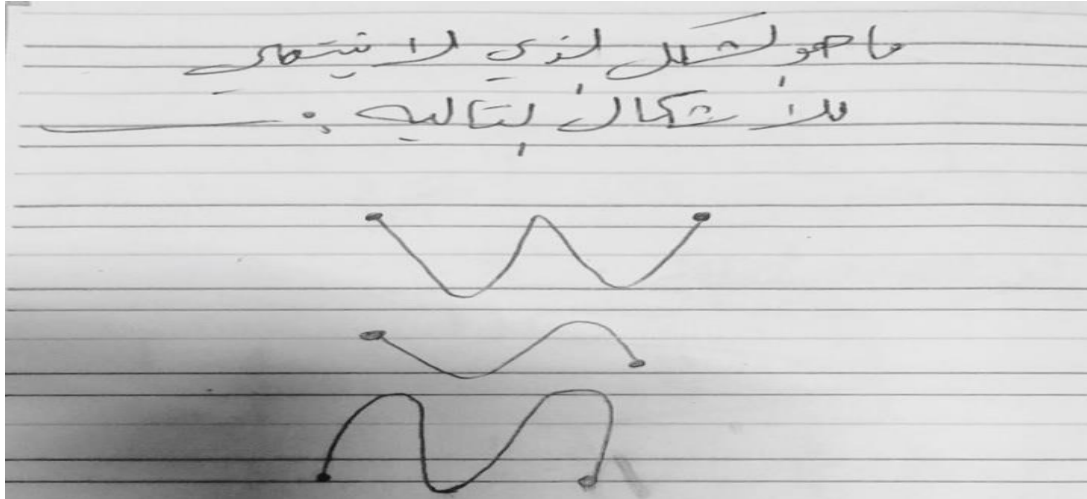 ما هو الشكل الذي لا ينتمي
للأشكال التالية :